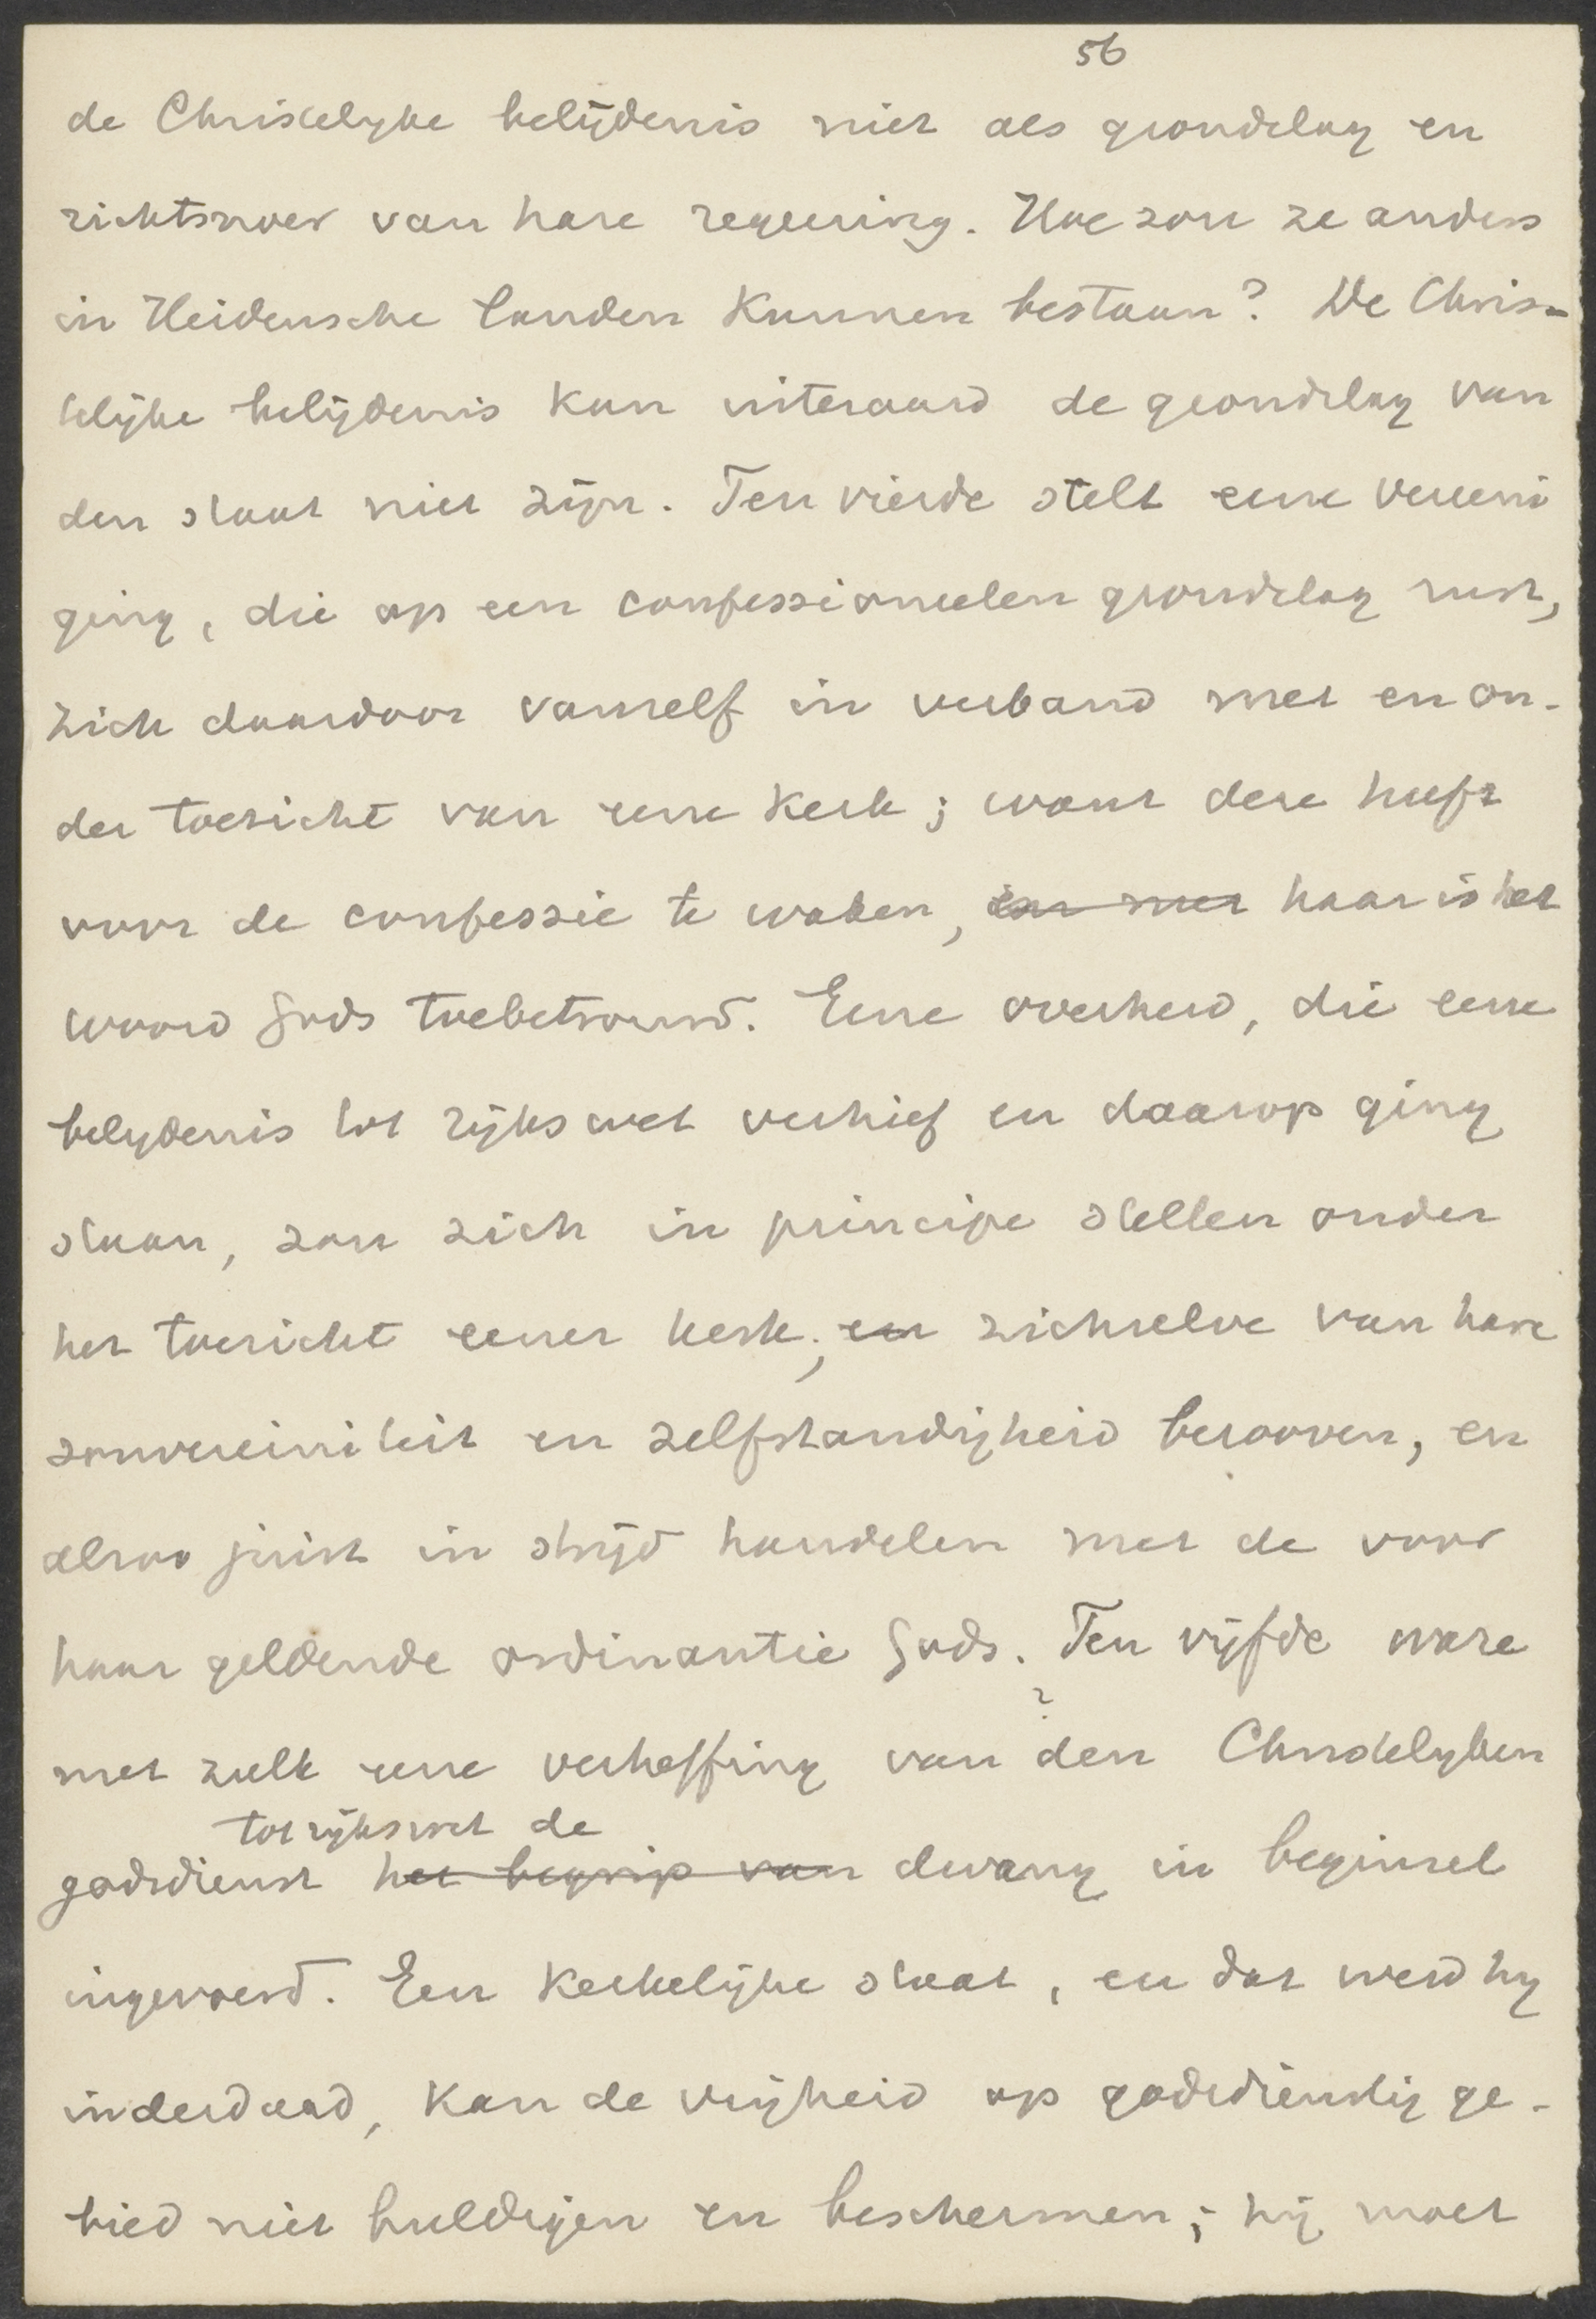 56
de Christelyke belijdenis niet als grondslag en
richtsnoer van hare regeering. Hoe zou ze anders
in Heidensche landen kunnen bestaan? De Chris-
telijke belijdenis kan uiteraard de grondslag van
den staat niet zijn. Ten vierde stelt eene vereeni
ging, die op een confessioneelen grondslag rust,
zich daardoor vanzelf in verband met en on-
der toezicht van eene kerk; want deze heeft
voor de confessie te waken, en met haar is het
woord Gods toebetrouwd. Eene overheid, die eene
belydenis tot rijkswet verhief en daarop ging
staan, zou zich in principe stellen onder
het toezicht eener kerk; en zichzelve van hare
souvereiniteit en zelfstandigheid berooven, en
alzoo juist in strijd handelen met de voor
haar geldende ordinantie Gods. Ten vijfde ware
?
met zulk eene verheffing van den Christelyken
tot rijkswet de
godsdienst het begrip van dwang in beginsel
ingevoerd. Een kerkelijke staat, en dat werd hy
inderdaad, kan de vrijheid op godsdienstig ge-
bied niet huldigen en beschermen; hij moet